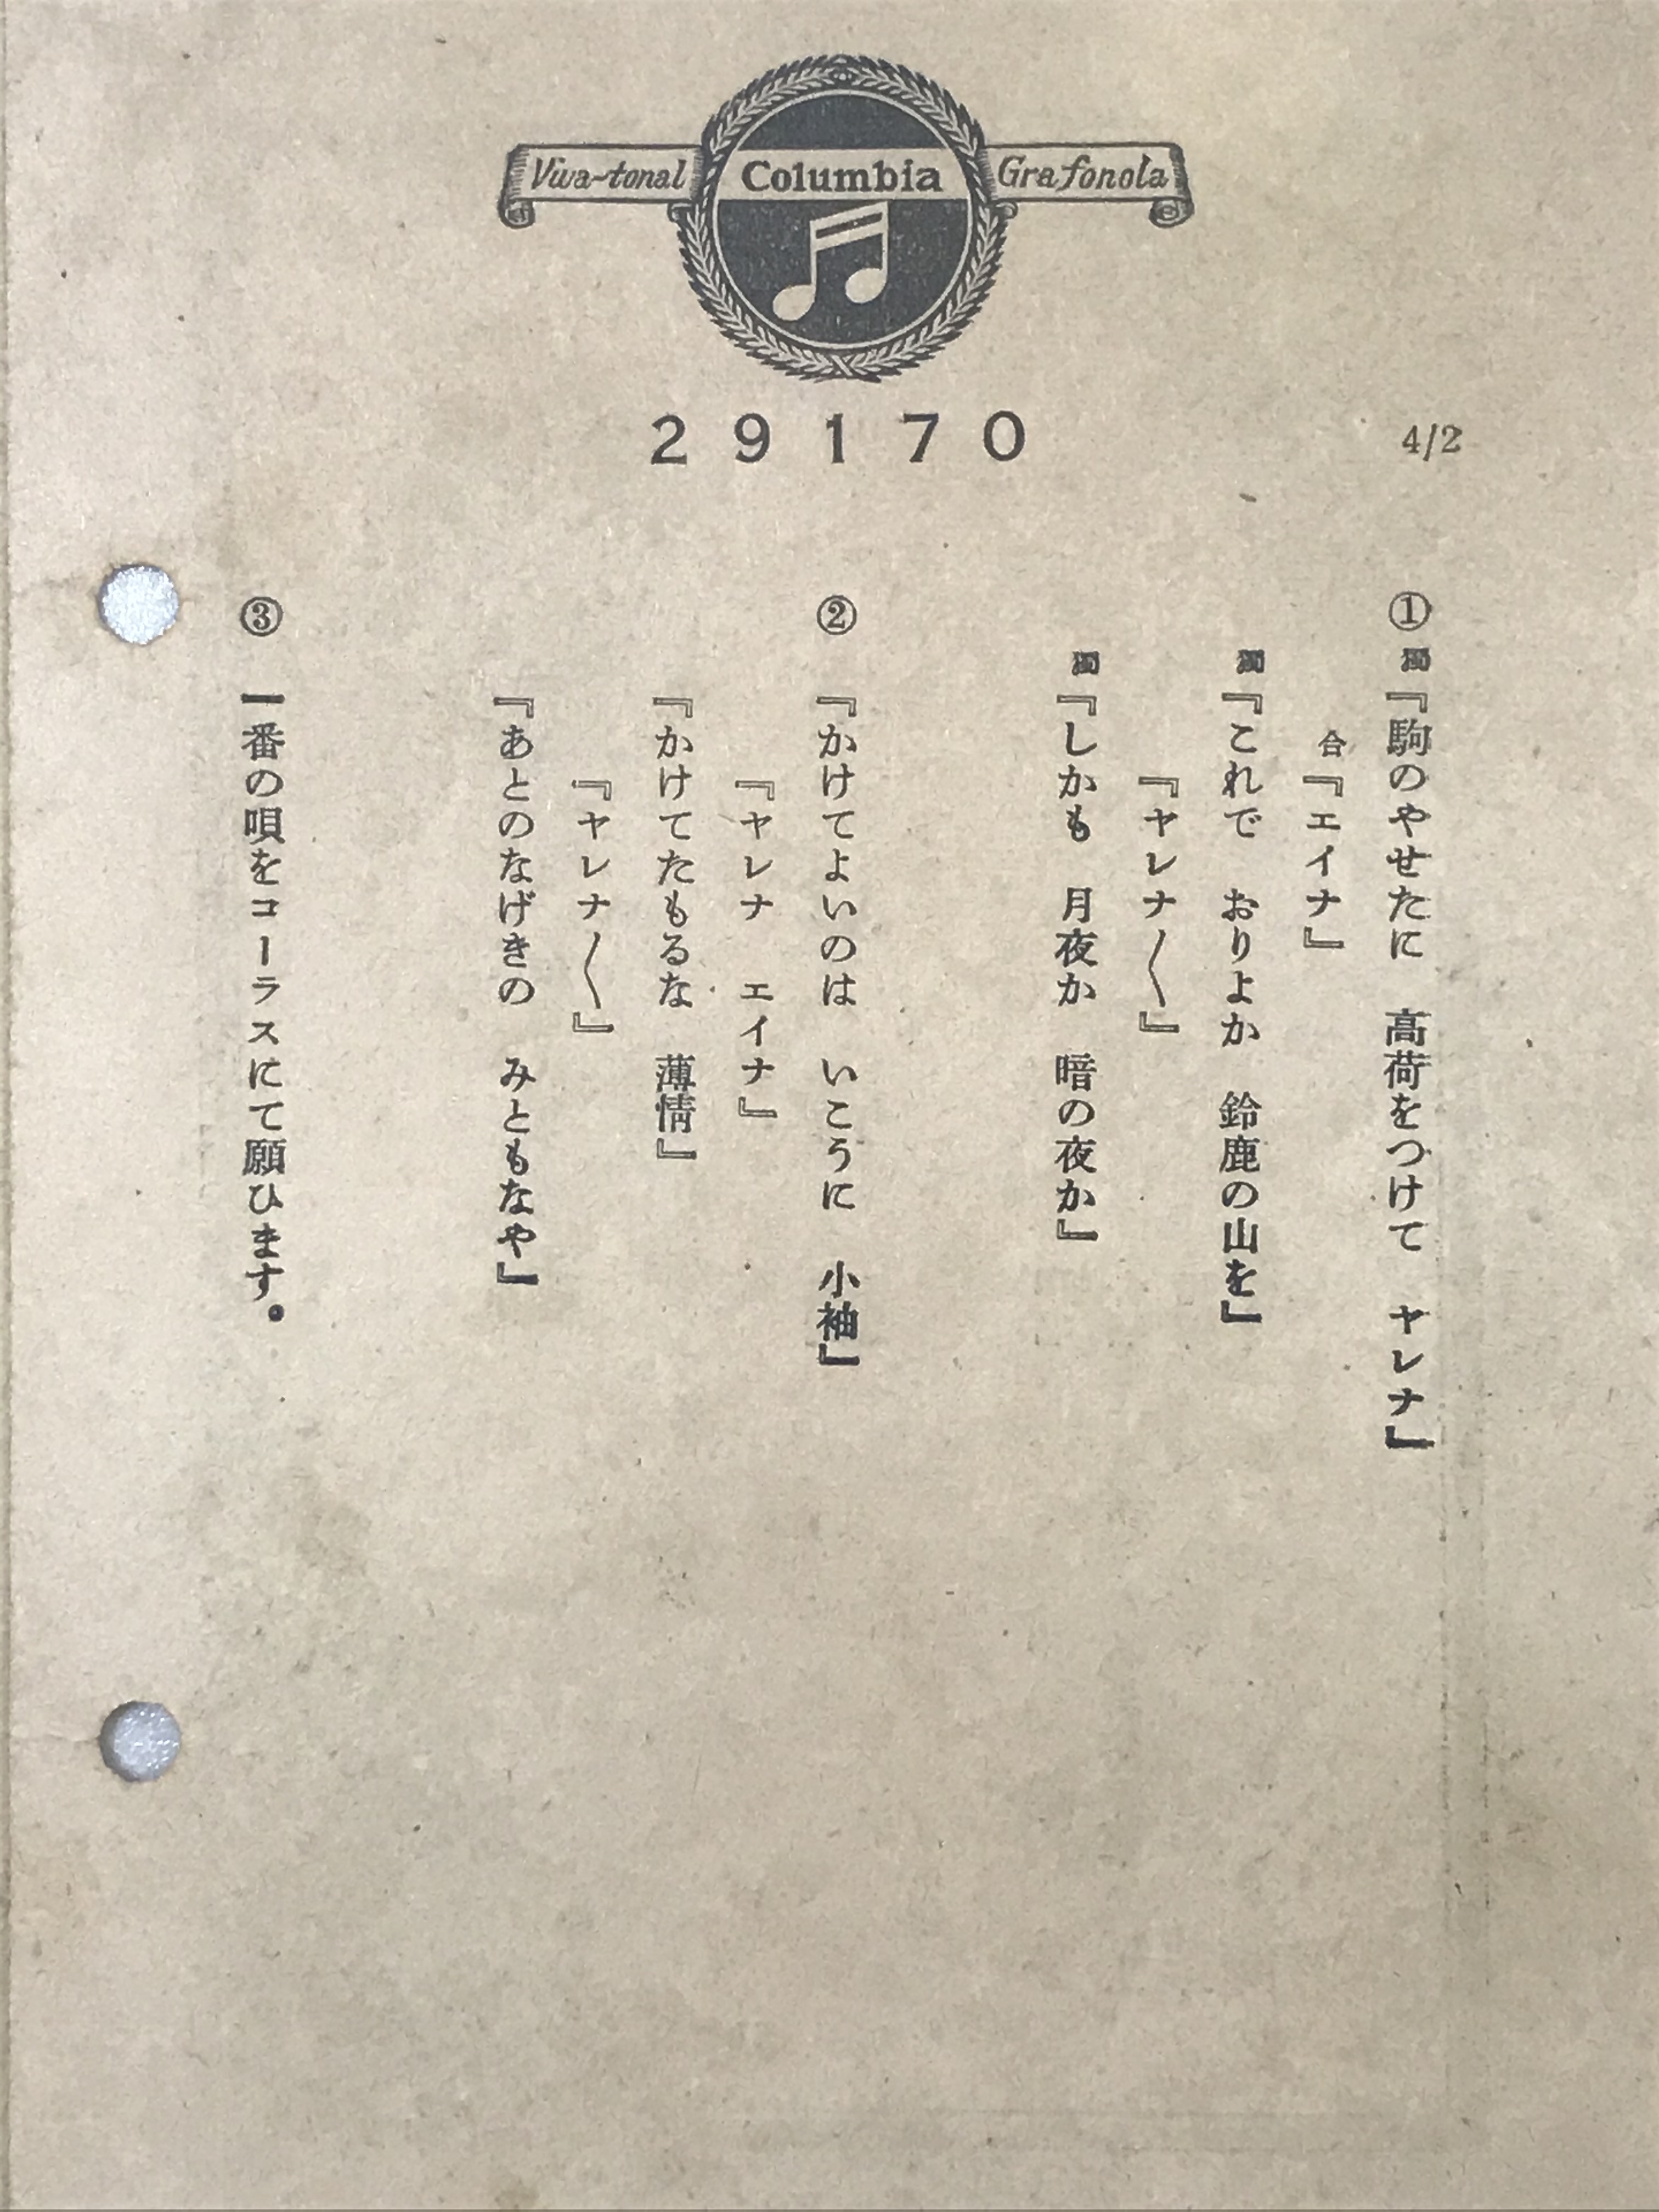 Viva-tonal Columbia Grafonola
29170
4/2
① 獨『駒のやせたに 高荷をつけて ヤレナ』
合『エイナ』
獨『これで おりよか 鈴鹿の山を』
『ヤレナ〳〵』
獨『しかも 月夜か 暗の夜か』
② 『かけてよいのは いこうに 小袖』
『ヤレナ エイナ』
『かけてたもるな 薄情』
『ヤレナ〳〵』
『あとのなげきの みともなや』
③ 一番の唄をコーラスにて願ひます。